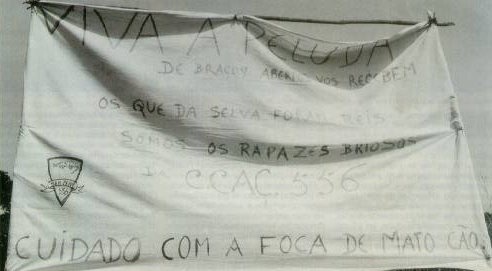 VIVA A PELUDA
DE BRAÇOS ABERTOS VOS RECEBEM
OS QUE DA SELVA FORAM REIS
SOMOS OS RAPAZES BRIOSOS
CCAÇ. 556
CUIDADO COM A FOCA DE MATO CÃO